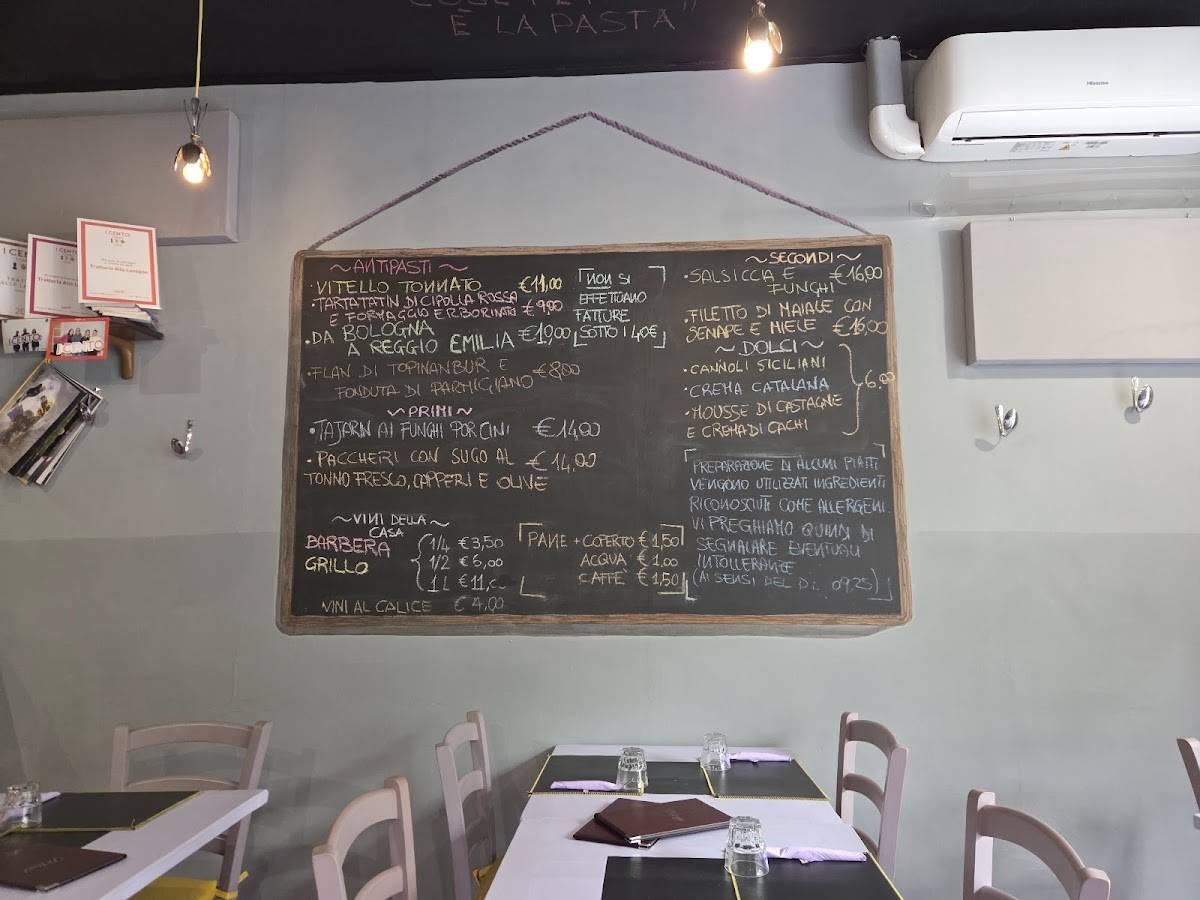 È LA PASTA"
Hisense
I CENTO
I CENTO
Trattoria Alla Lavagna
~ANTIPASTI~
·VITELLO TONNATO €11,00
·TARTATATIN DI CIPOLLA ROSSA
E FORMAGGIO ERBORINATO €9,00
·DA BOLOGNA
A REGGIO EMILIA €19,00
·FLAN DI TOPINANBUR E
FONDUTA DI PARMIGIANO €8,00
~PRIMI~
·TAJARIN AI FUNGHI PORCINI €14,00
·PACCHERI CON SUGO AL
TONNO FRESCO, CAPPERI E OLIVE €14,00
NON SI
EFFETTUANO
FATTURE
SOTTO I 40€
~SECONDI~
·SALSICCIA E
FUNGHI €16,00
·FILETTO DI MAIALE CON
SENAPE E MIELE €16,00
~DOLCI~
·CANNOLI SICILIANI
·CREMA CATALANA
·MOUSSE DI CASTAGNE
E CREMA DI CACHI
6,00
~VINI DELLA
CASA
BARBERA
GRILLO
1/4 €3,50
1/2 €6,00
1 L €11,00
VINI AL CALICE €4,00
PANE + COPERTO €1,50
ACQUA €1,00
CAFFÈ €1,50
PREPARAZIONE DI ALCUNI PIATTI
VENGONO UTILIZZATI INGREDIENTI
RICONOSCIUTI COME ALLERGENI.
VI PREGHIAMO QUINDI DI
SEGNALARE EVENTUALI
INTOLLERANZE
(AI SENSI DEL D.L. 09,25)